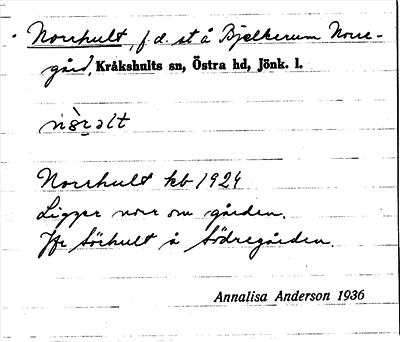 Norrhult, f.d. st å Bjelkerum Norre-
gård, Kråkshults sn, Östra hd, Jönk. l.
Norrhult kb 1924
Ligger norr om gården.
Jfr Sörhult å Södregården.
Annalisa Anderson 1936